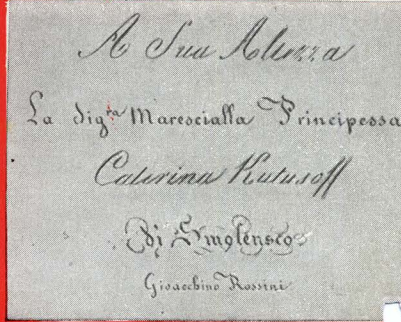 A Sua Altezza
La Sigra Marescialla Principessa
Caterina Kutusoff
Di Smolensco
Gioacchino Rossini